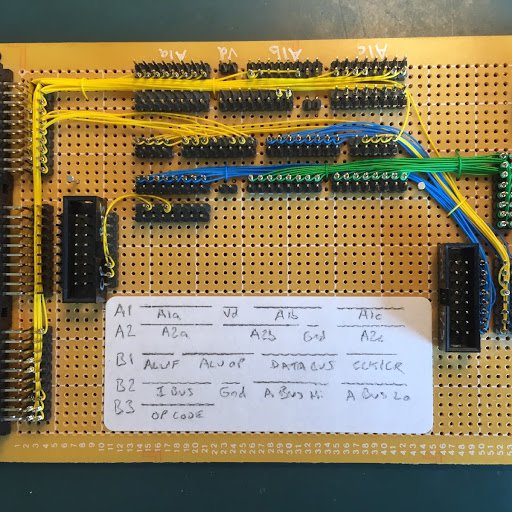 A1a Vd A1b A1c
A1 A1a Vd A1b A1c
A2 A2a A2b Gnd A2c
B1 ALUF ALUOP DATA BUS CLK/CR
B2 I BUS Gnd A Bus Hi A Bus Lo
B3 OP CODE
1 2 3 4 5 6 7 8 9 10 11 12 13 14 15 16 17 18 19 20 21 22 23 24 25 26 27 28 29 30 31 32 33 34 35 36 37 38 39 40 41 42 43 44 45 46 47 48 49 50 51 52 53